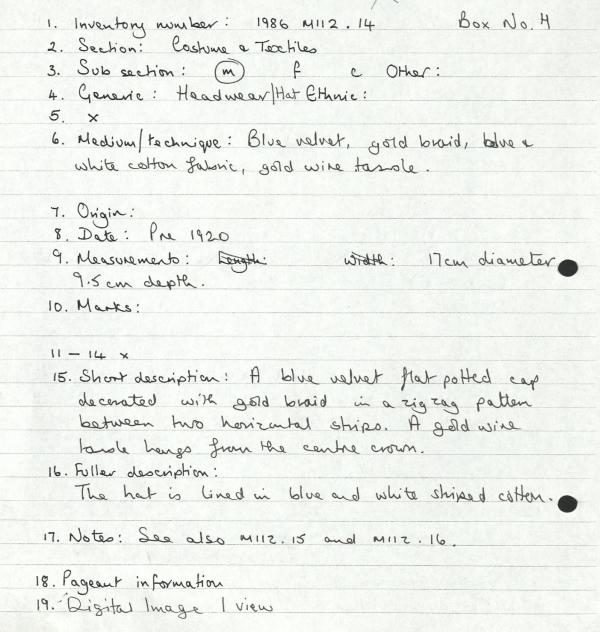 1. Inventory number: 1986 M112.14 Box No. 4
2. Section: Costume & Textiles
3. Sub section: m f c Other:
4. Generic: Headwear/Hat Ethnic:
5. x
6. Medium/technique: Blue velvet, gold braid, blue &
white cotton fabric, gold wire tassle.
7. Origin:
8. Date: Pre 1920
9. Measurements: Length: width: 17cm diameter
9.5cm depth.
10. Marks:
11 - 14 x
15. Short description: A blue velvet flat potted cap
decorated with gold braid in a zig zag pattern
between two horizontal strips. A gold wire
tassle hangs from the centre crown.
16. Fuller description:
The hat is lined in blue and white striped cotton.
17. Notes: See also M112.15 and M112.16.
18. Pageant information
19. Digital Image 1 view